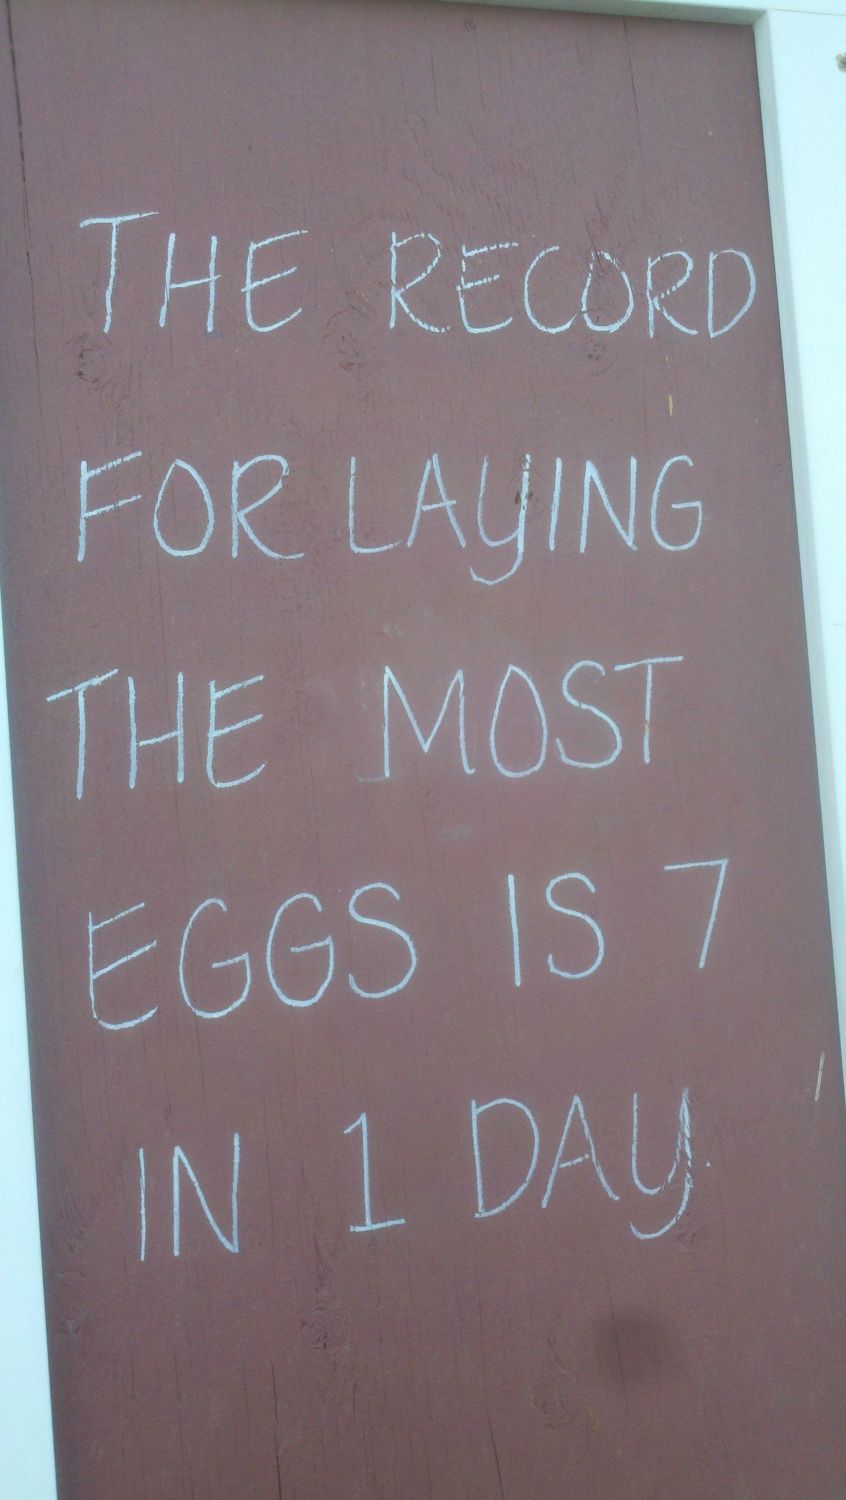 THE RECORD
FOR LAYING
THE MOST
EGGS IS 7
IN 1 DAY.